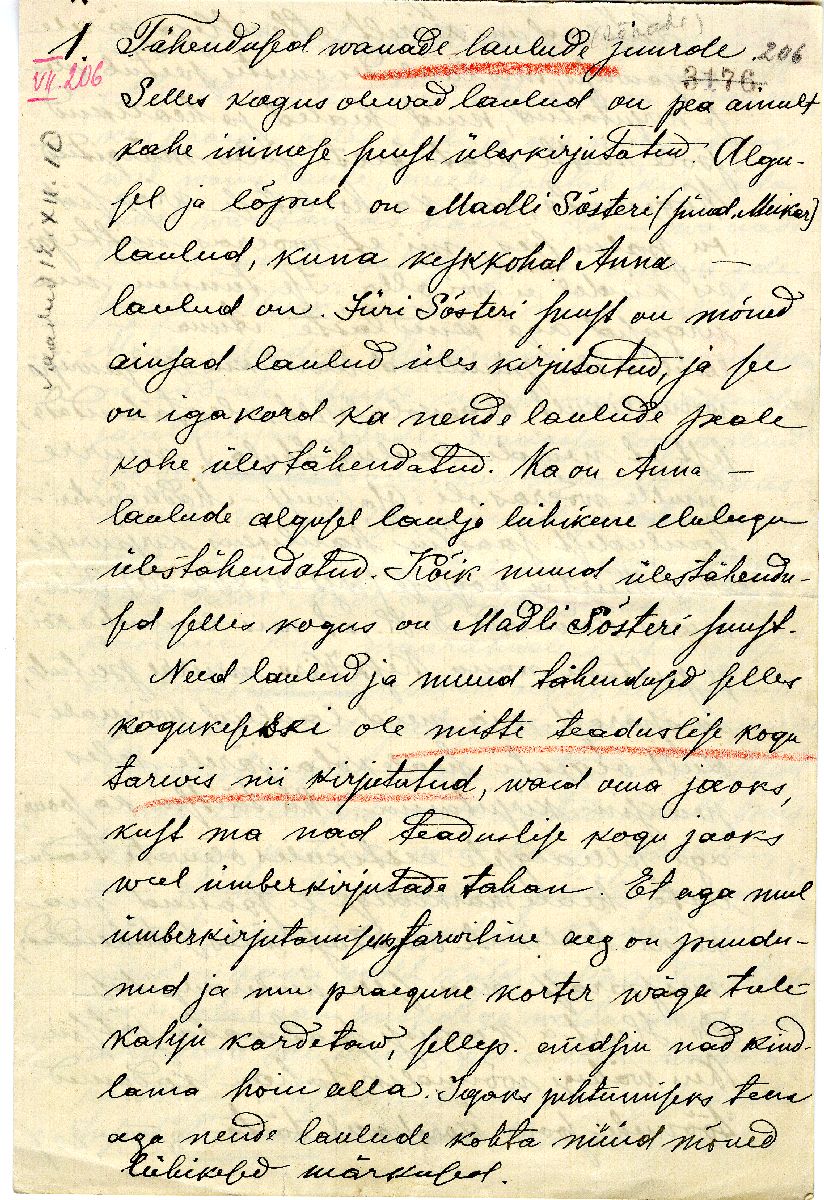 1. Tähendused wanade laulude juurde. 206
VII. 206
3176.
Selles kogus olewad laulud on pea ainult
kahe inimese suust üleskirjutatud. Algu-
sel ja lõpul on Madli Sõsteri (sünd. Meikar)
laulud, kuna keskkohal Anna —
laulud on. Jüri Sõsteri suust on mõned
ainsad laulud üles kirjutatud, ja see
on igakord ka nende laulude peale
kohe ülestähendatud. Ka on Anna —
laulude algusel laulja lühikene elulugu
ülestähendatud. Kõik muud ülestähendu-
sed selles kogus on Madli Sõsteri suust.
Need laulud ja muud tähendused selles
kogukeses ei ole mitte teaduslise kogu
tarwis nii kirjutatud, waid oma jaoks,
kust ma nad teaduslise kogu jaoks
weel ümberkirjutade tahan. Et aga mul
ümberkirjutamiseks tarwiline aeg on puudu-
nud ja mu praegune korter wäga tule-
kahju kardetaw, sellep. andsin nad kind-
lama hoiu alla. Igaks juhtumiseks teen
aga nende laulude kohta nüüd mõned
lühikesed märkused.
Saadud 12. XII. 10